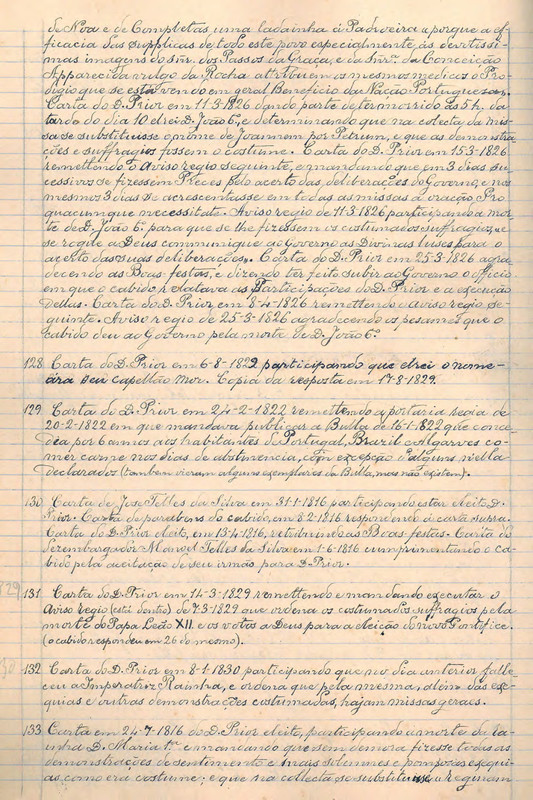 de Noa e de Completas, uma ladainha á Padroeira, porque a ef-
ficacia das supplicas de todo este povo especialmente, ás devotissi-
mas imagens do Snr. dos Passos da Graça, e da Snrª. da Conceição
Apparecida vulgo da Rocha attribuem os mesmos medicos o Pro-
digio que se está vendo em geral Beneficio da Nação Portugueza.
Carta do D. Prior em 11-3-1826 dando parte de ter morrido ás 5 h. da
tarde do dia 10 d'el rei D. João 6º, e determinando que na colecta da mis-
sa se substituisse o nome de Joannem por Petrum, e que as demonstra-
ções e suffragios fossem o costume. Carta do D. Prior em 15-3-1826
remettendo o Aviso regio seguinte, e mandando que em 3 dias suc-
cessivos se fizessem Preces pelo acerto das deliberações do Governo, e nos
mesmos 3 dias se acrescentasse em todas as missas a oração Pro
quacumque necessitate. Aviso regio de 11-3-1826 participando a mor-
te de D. João 6º para que se lhe fizessem os costumados suffragios, e
se rogue a Deus communique ao Governo as Divinas luses para o
acerto das suas deliberações. Carta do D. Prior em 25-3-1826 agra-
decendo as Boas-festas, e dizendo ter feito subir ao Governo o officio
em que o cabido relatava as Participações do D. Prior e a execução
dellas. Carta do D. Prior em 3-4-1826 remettendo o aviso regio se-
guinte. Aviso regio de 25-3-1826 agradecendo os pesames que o
cabido deu ao Governo pela morte de D. João 6º
128 Carta do D. Prior em 6-8-1829 participando que elrei o nome-
ára seu capellão mor. Copia da resposta em 17-8-1829.
129 Carta do D. Prior em 24-2-1822 remettendo a portaria regia de
20-2-1822 em que mandava publicar a Bulla de 16-1-1822 que conce-
dia por 6 annos aos habitantes de Portugal, Brazil e Algarves co-
mer carne nos dias de abstinencia, com excepção d'alguns n'ella
declarados (tambem vieram alguns exemplares da Bulla, mas não existem).
130 Carta de José Telles da Silva em 31-1-1816 participando estar eleito D.
Prior. Carta de parabens do cabido, em 8-2-1816 respondendo á carta supra.
Carta do D. Prior eleito, em 13-4-1816, retribuindo as Boas-festas. Carta do
Desembargador Manoel Telles da Silva em 1-6-1816 cumprimentando o ca-
bido pela aceitação de seu irmão para D. Prior.
131 Carta do D. Prior em 14-3-1829 remettendo e mandando executar o
Aviso regio (está dentro) de 7-3-1829 que ordena os costumados suffragios pela
morte do Papa Leão XII. e os votos a Deus para a eleição do novo Pontifice.
(o cabido respondeu em 26 do mesmo).
132 Carta do D. Prior em 8-1-1830 participando que no dia anterior falle-
ceu a Imperatriz Rainha, e ordena que pela mesma, além das exe-
quias e outras demonstrações costumadas, hajam missas geraes.
133 Carta em 24-7-1816 do D. Prior eleito, participando a morte da ra-
inha D. Maria 1ª e mandando que sem demora fizesse todas as
demonstrações de sentimento e mais solemnes e pomposas exequi-
as, como era costume; e que na collecta se substituisse Reginam